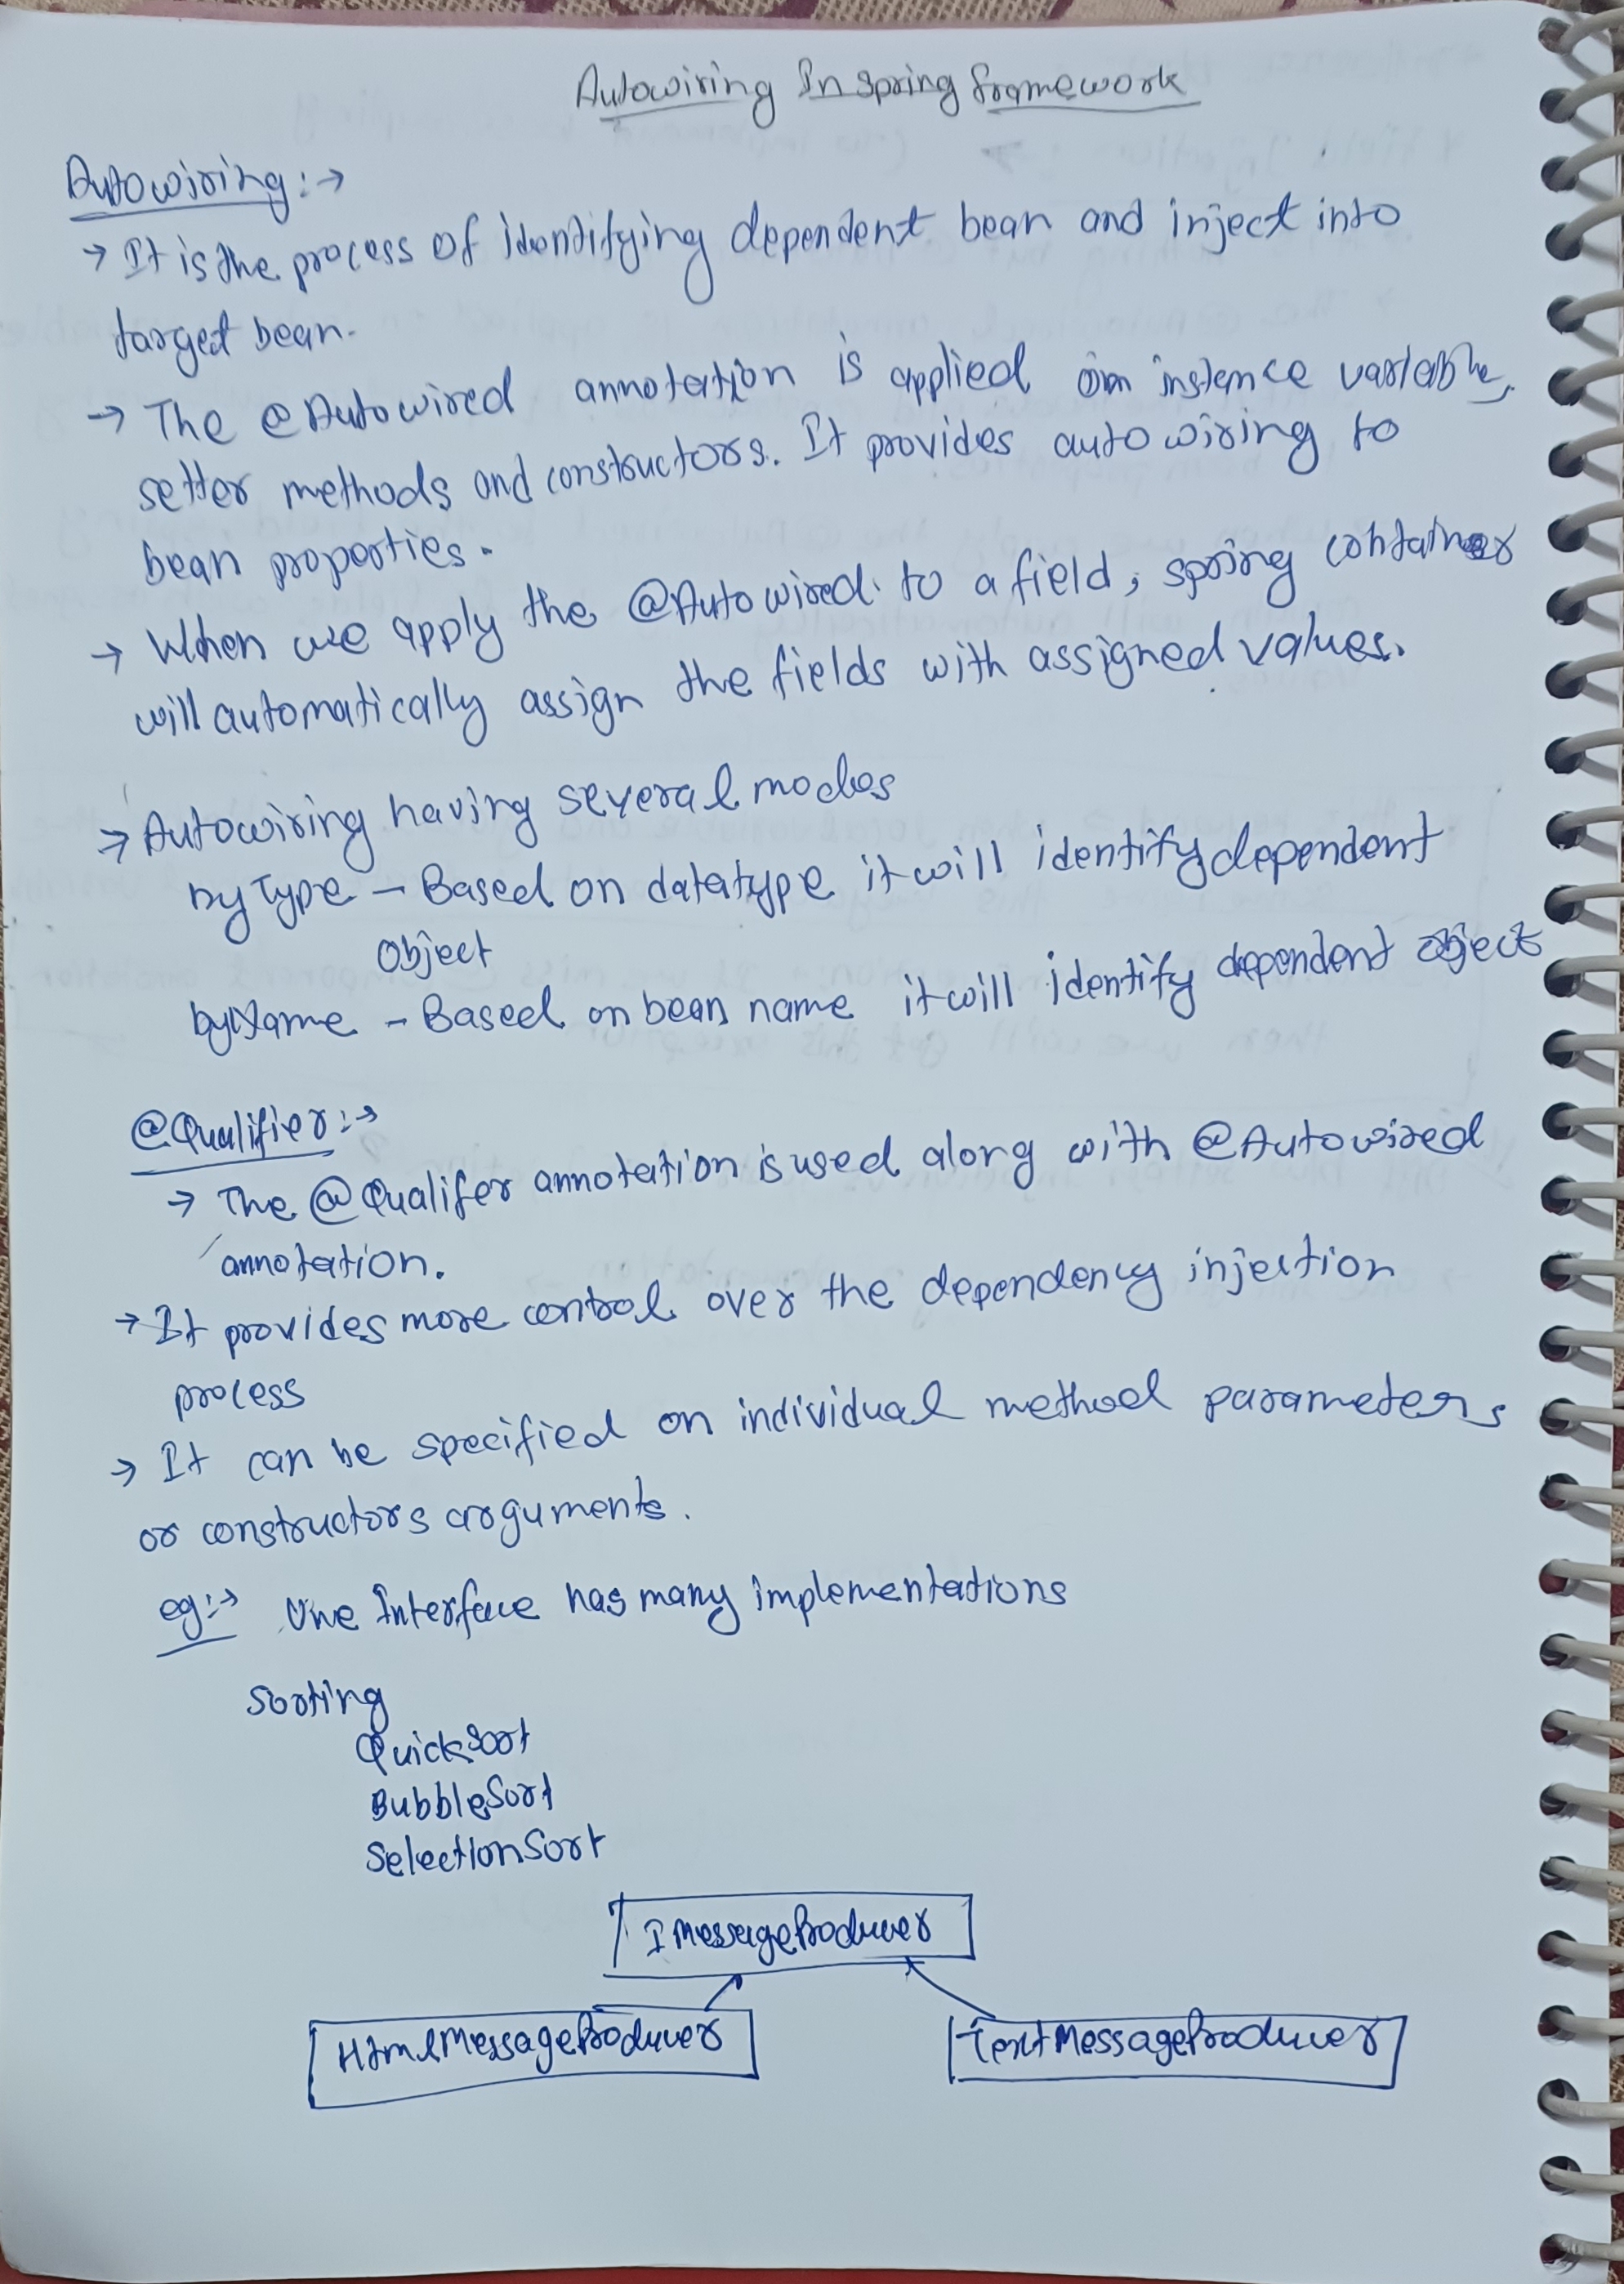 Autowiring In Spring framework
Autowiring :→
→ It is the process of identifying dependent bean and inject into
target bean.
→ The @Autowired annotation is applied on instence variable,
setter methods and constructors. It provides autowiring to
bean properties.
→ When we apply the @Autowired to a field, spring container
will automatically assign the fields with assigned values.
→ Autowiring having several modes
byType - Based on datatype it will identify dependent
Object
byName - Based on bean name it will identify dependent object
@Qualifier :→
→ The @Qualifer annotation is used along with @Autowired
annotation.
→ It provides more control over the dependency injection
process
→ It can be specified on individual method parameters
or constructors arguments.
eg :→ One Interface has many implementations
Sorting
QuickSort
BubbleSort
SelectionSort
IMessageProducer
HtmlMessageProducer TextMessageProducer